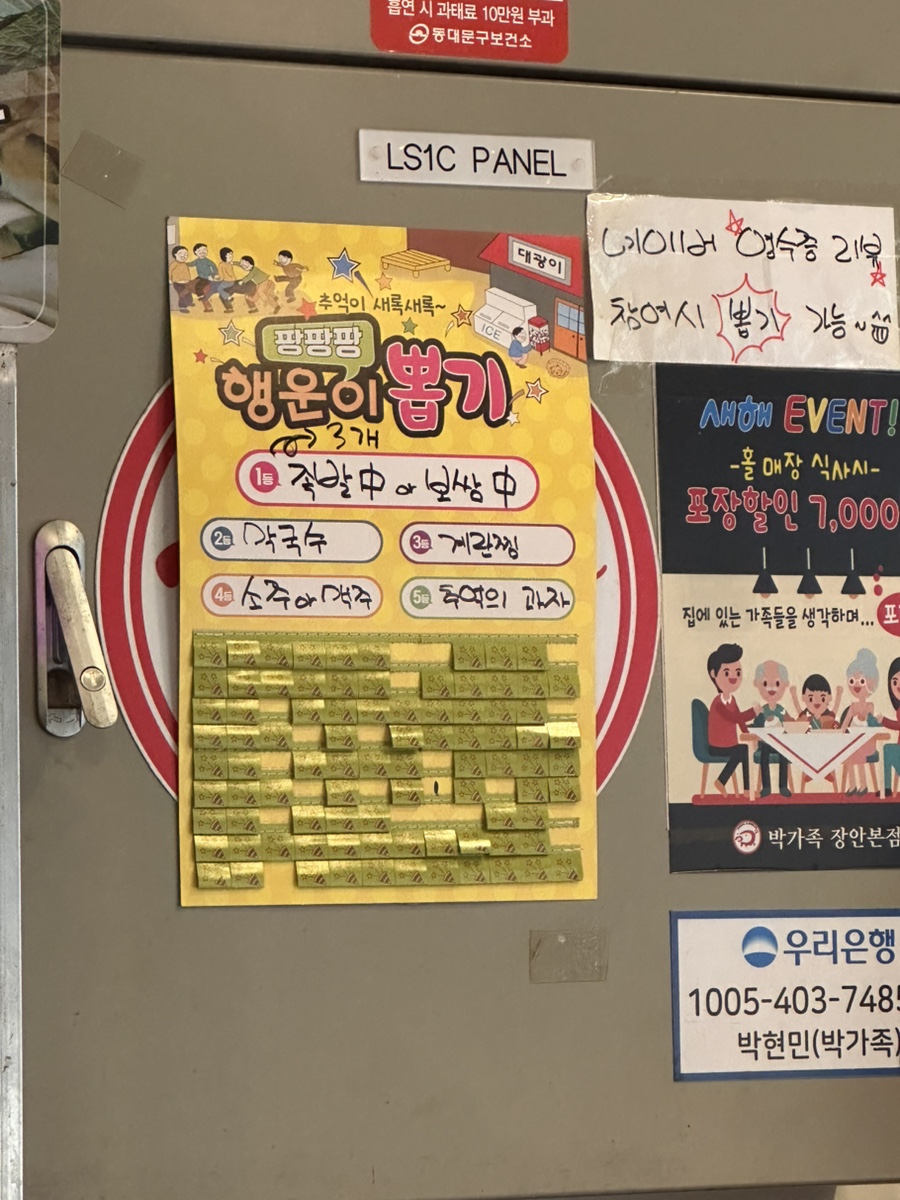 흡연 시 과태료 10만원 부과
동대문구보건소
LS1C PANEL
네이버 영수증 리뷰
참여시 뽑기 가능~
대광이
ICE
추억이 새록새록~
팡팡팡
행운이 뽑기
3개
1등 족발中 or 보쌈中
2등 막국수
3등 계란찜
4등 소주or맥주
5등 추억의 과자
새해 EVENT!
-홀 매장 식사시-
포장할인 7,000
집에 있는 가족들을 생각하며...
포
박가족 장안본점
우리은행
1005-403-7485
박현민(박가족)